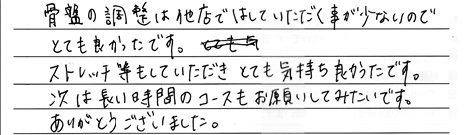 骨盤の調整は他店ではしていただく事が少ないので
とても良かったです。
ストレッチ等もしていただきとても気持ち良かったです。
次は長い時間のコースもお願いしてみたいです。
ありがとうございました。